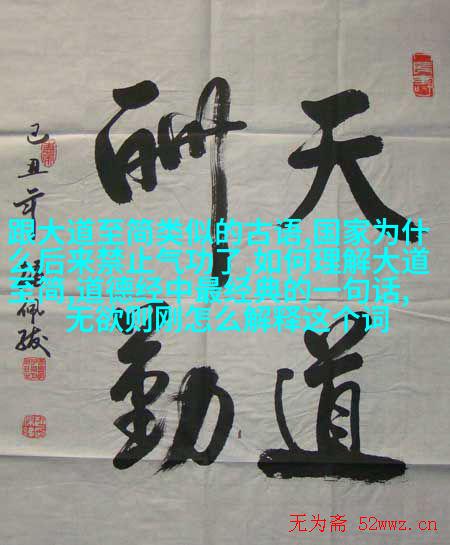 天道
酬勤
己丑年
佩
跟大道至简类似的古语,国家为什
么后来禁止气功了,如何理解大道
至简,道德经中最经典的一句话,
无欲则刚怎么解释这个词
无为斋 52wwz.cn